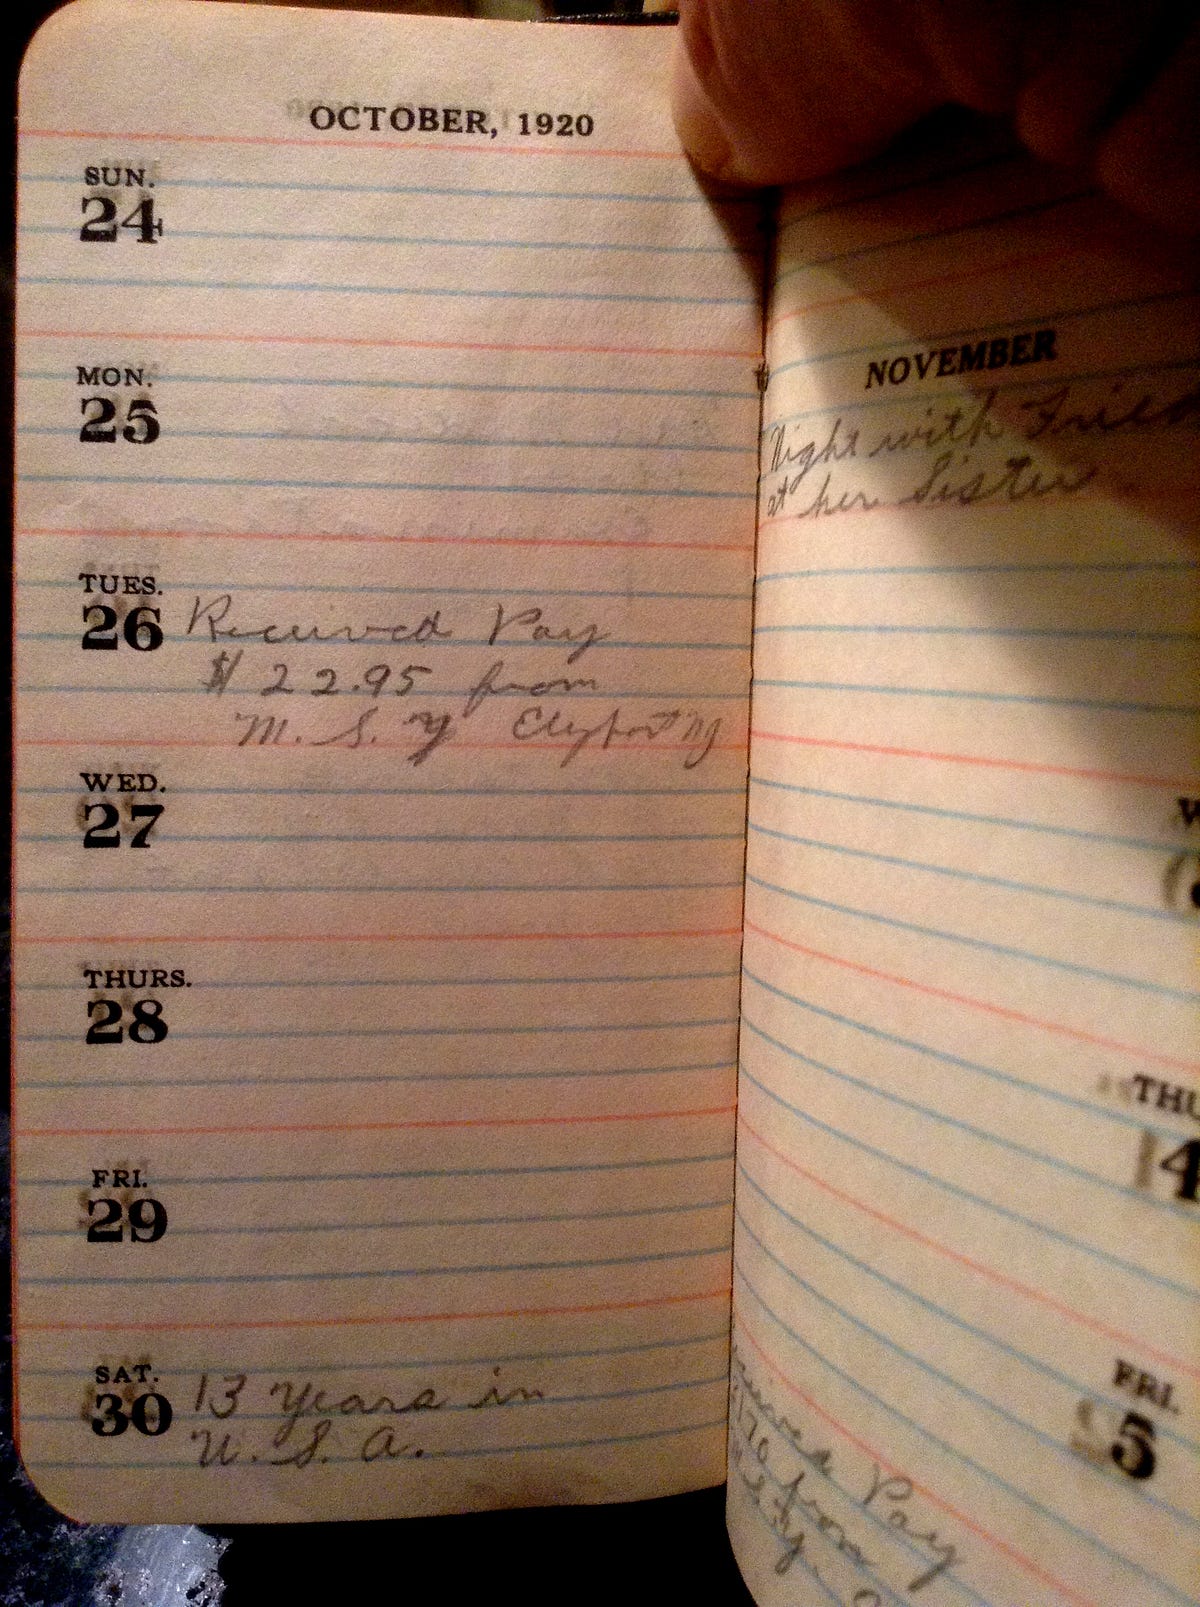 OCTOBER, 1920
SUN.
24
MON.
25
TUES.
26 Received Pay
$22.95 from
M. S. Y
WED.
27
THURS.
28
FRI.
29
SAT.
30 13 Years in
U. S. A.
NOVEMBER
Night with
at her Sister
THU
4
FRI.
5
Pay
from